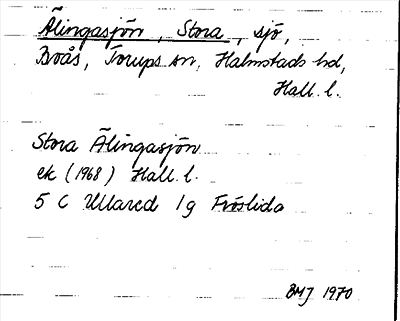 Älingasjön, Stora, sjö,
Boås, Torups sn, Halmstads hd,
Hall. l.
Stora Älingasjön
ek (1968) Hall. l.
5 C Ullared 1g Fröslida
BMJ 1970